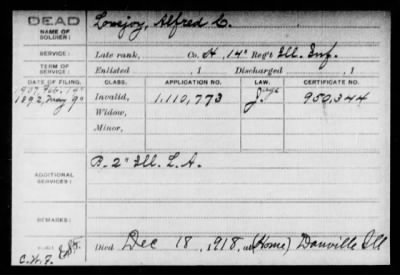 DEAD
NAME OF SOLDIER:
Lovejoy, Alfred C.
SERVICE:
Late rank, Co. H, 14" Reg't Ill. Inf.
TERM OF SERVICE:
Enlisted , 1 Discharged , 1
DATE OF FILING. CLASS. APPLICATION NO. LAW. CERTIFICATE NO.
1907, Feb. 14"
1892, May 9" Invalid, 1,110,773 950,344
Widow,
Minor,
ADDITIONAL SERVICES:
B. 2" Ill. L.A.
REMARKS:
C.W.F.
Died Dec 18, 1918, at (Home) Danville Ill